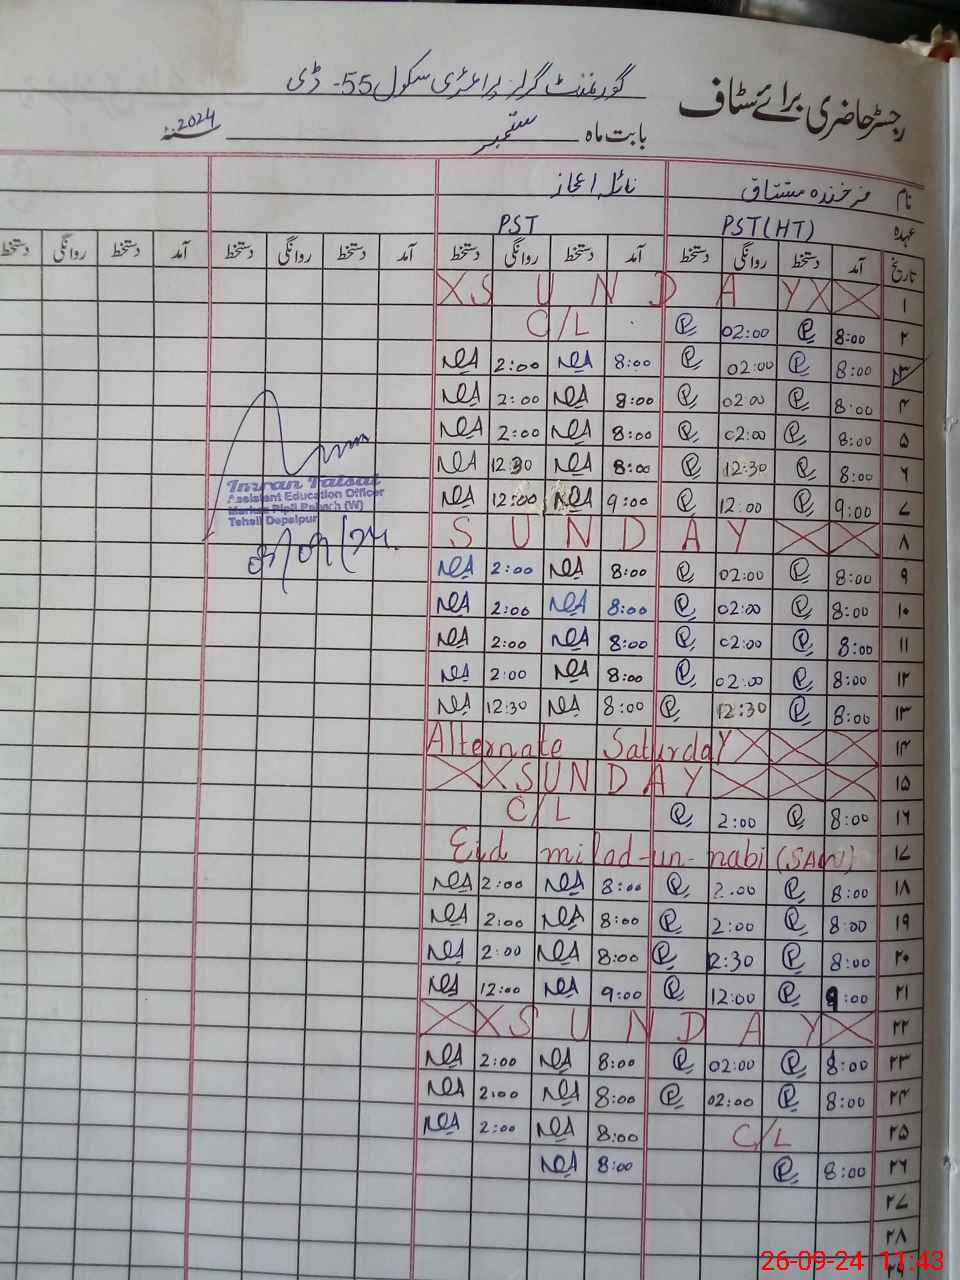 رجسٹر حاضری برائے سٹاف
گورنمنٹ گرلز پرائمری سکول 55- ڈی
بابت ماہ ستمبر 2024
نام فرخندہ مشتاق نائلہ اعجاز
عہدہ PST(HT) PST
تاریخ آمد دستخط روانگی دستخط آمد دستخط روانگی دستخط آمد دستخط روانگی دستخط آمد دستخط روانگی دستخط
۱ XS U N D A Y X X
۲ 8:00 02:00 C/L
۳ 8:00 02:00 8:00 NEA 2:00 NEA
۴ 8:00 02:00 8:00 NEA 2:00 NEA
۵ 8:00 02:00 8:00 NEA 2:00 NEA
۶ 8:00 12:30 8:00 NEA 12:30 NEA
۷ 9:00 12:00 9:00 NEA 12:00 NEA
۸ S U N D A Y X X
۹ 8:00 02:00 8:00 NEA 2:00 NEA
۱۰ 8:00 02:00 8:00 NEA 2:00 NEA
۱۱ 8:00 02:00 8:00 NEA 2:00 NEA
۱۲ 8:00 02:00 8:00 NEA 2:00 NEA
۱۳ 8:00 12:30 8:00 NEA 12:30 NEA
۱۴ Alternate Saturday X X X
۱۵ X X S U N D A Y X X X
۱۶ 8:00 2:00 C/L
۱۷ Eid milad-un-nabi (SAW)
۱۸ 8:00 2:00 8:00 NEA 2:00 NEA
۱۹ 8:00 2:00 8:00 NEA 2:00 NEA
۲۰ 8:00 12:30 8:00 NEA 2:00 NEA
۲۱ 9:00 12:00 9:00 NEA 12:00 NEA
۲۲ X X S U N D A Y X
۲۳ 8:00 02:00 8:00 NEA 2:00 NEA
۲۴ 8:00 02:00 8:00 NEA 2:00 NEA
۲۵ C/L 8:00 NEA 2:00 NEA
۲۶ 8:00 8:00 NEA
۲۷
۲۸
۲۹
Imran Faisal
Assistant Education Officer
Markaz Pipli Pahach (W)
Tehsil Depalpur
26-09-24 11:43